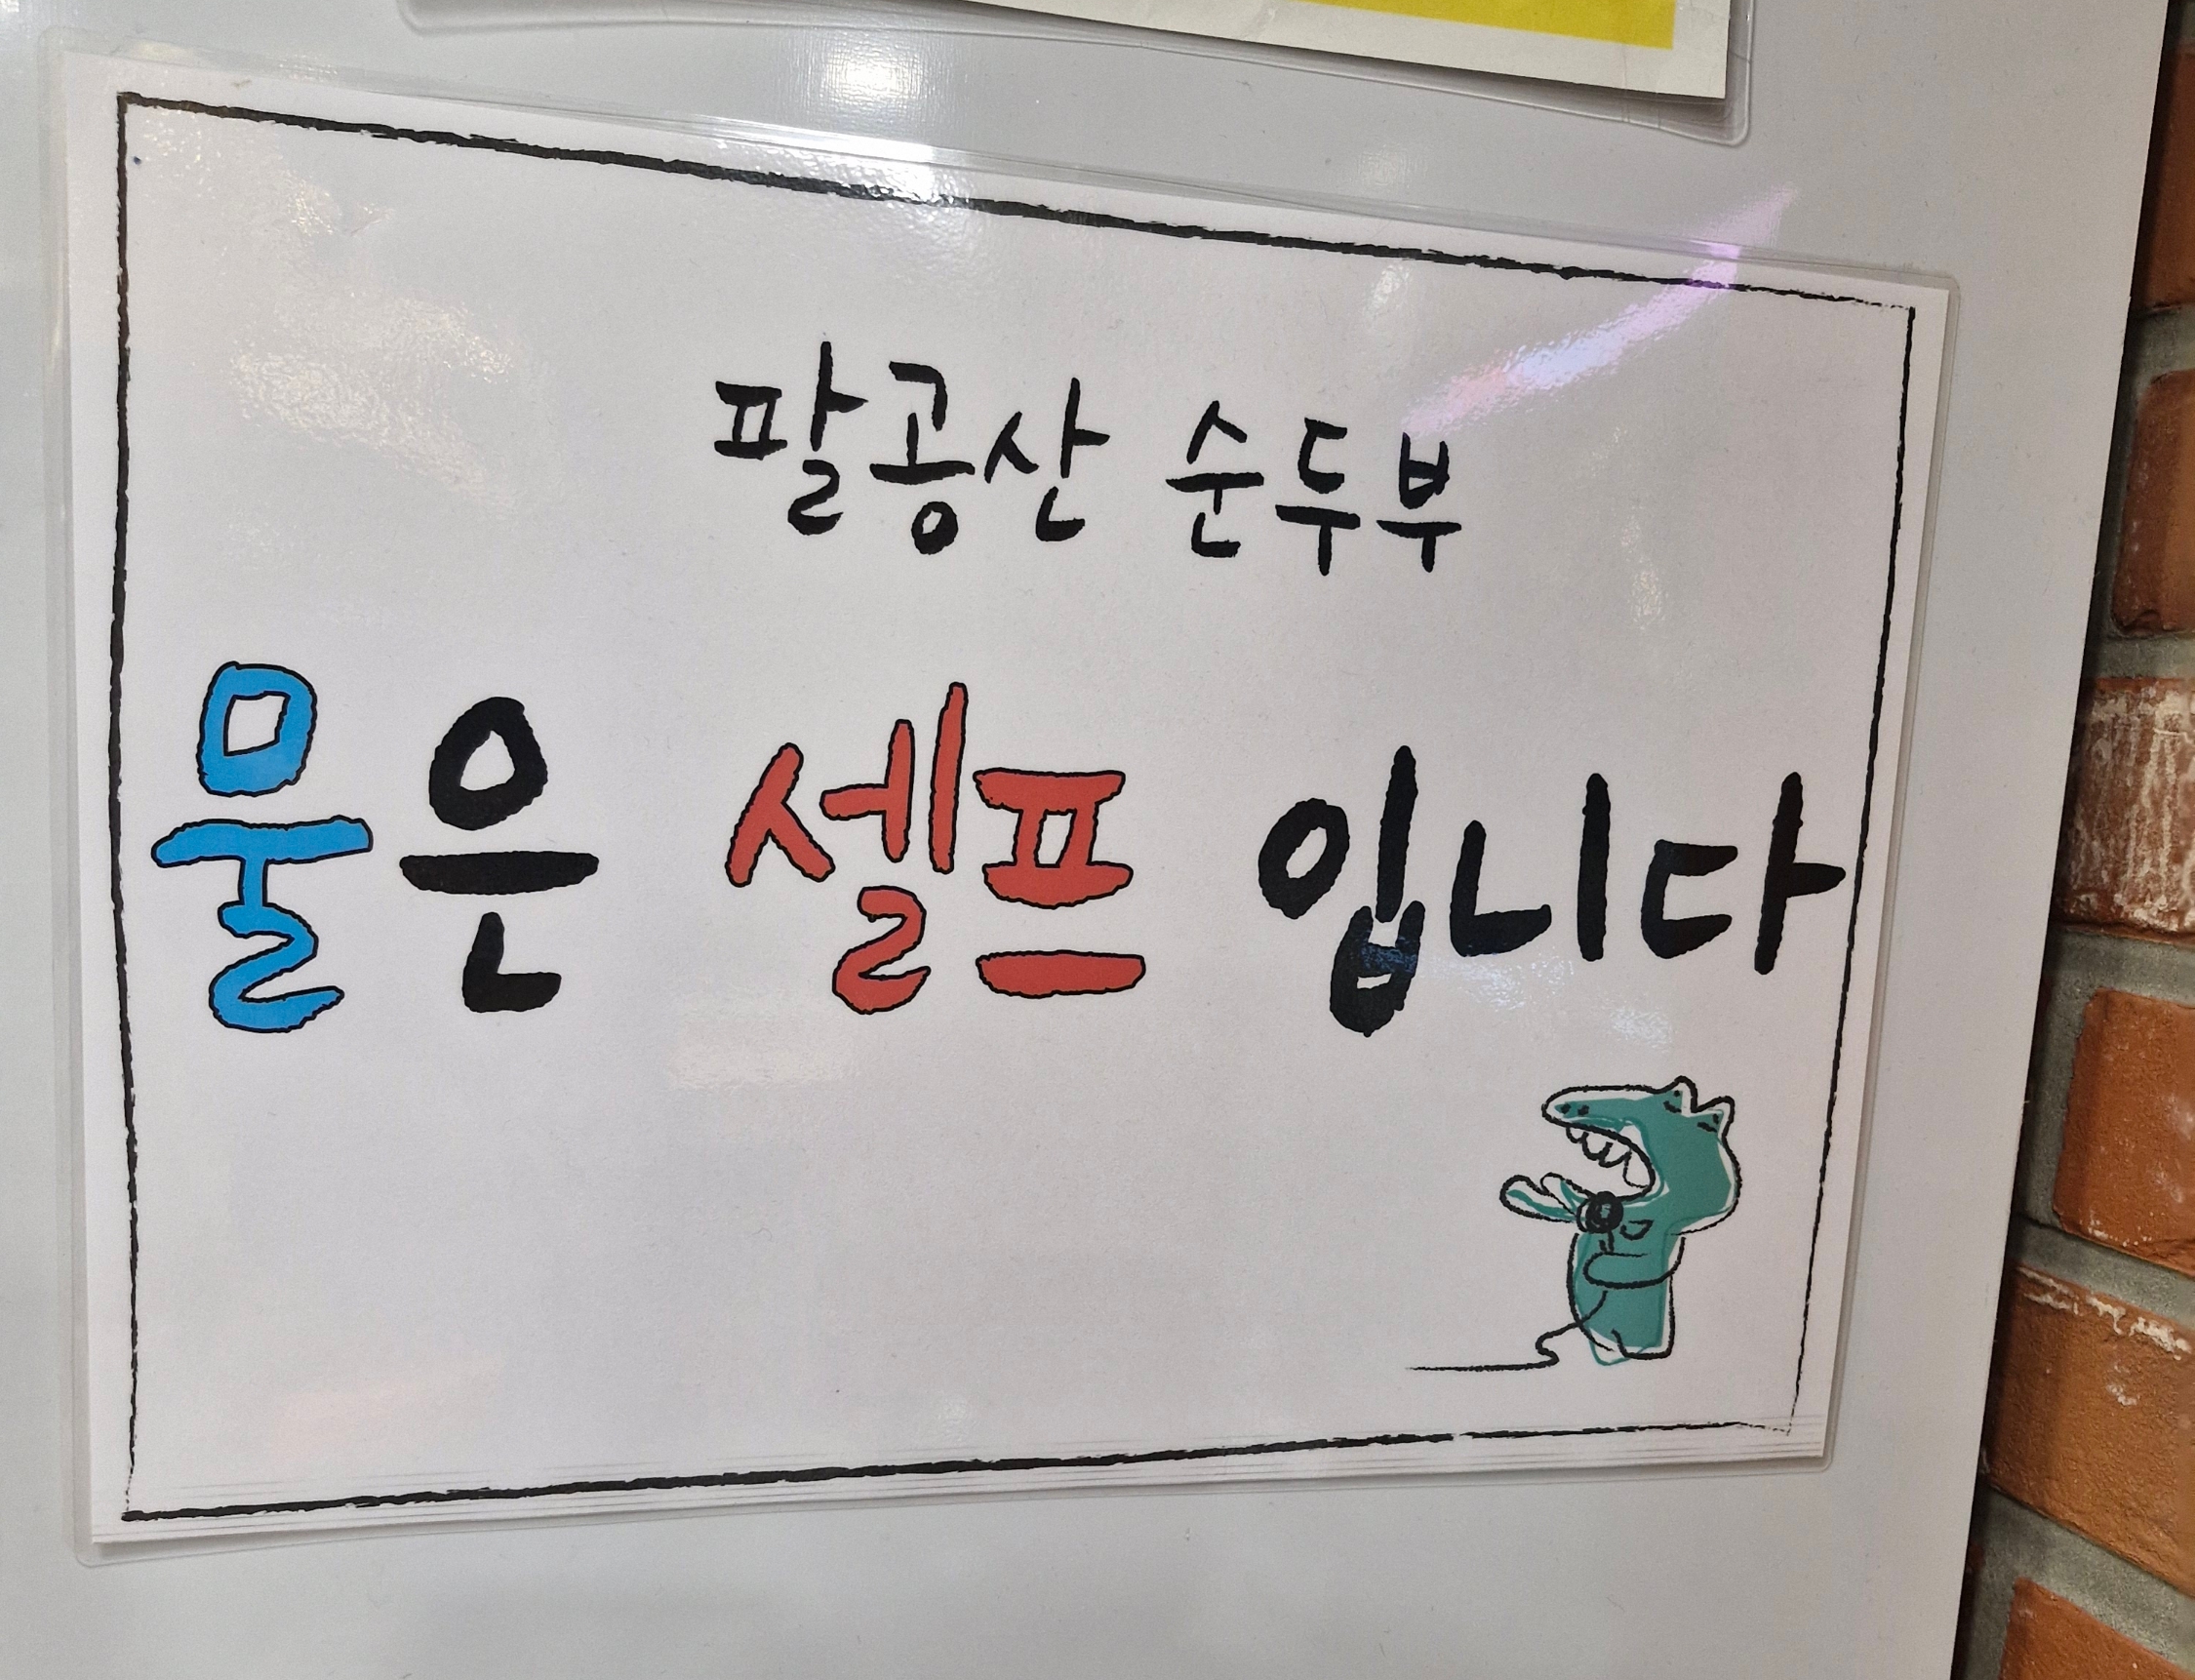 팔공산 순두부
물은 셀프 입니다